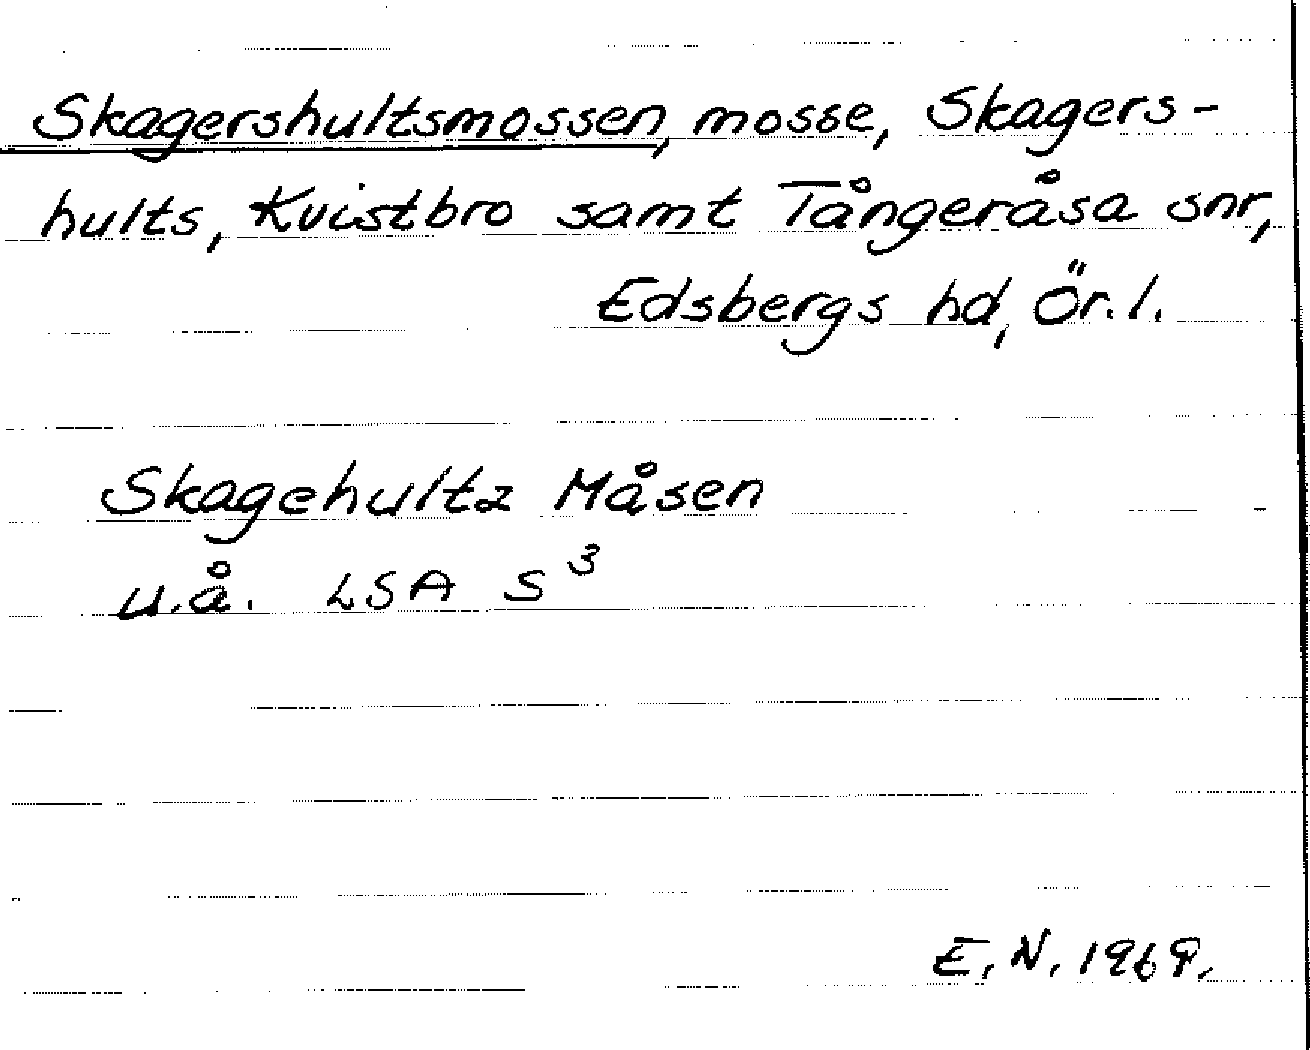 Skagershultsmossen, mosse, Skagers-
hults, Kvistbro samt Tångeråsa snr,
Edsbergs hd, Ör.l.
Skagehultz Måsen
u.å. LSA S³
E.N. 1969.